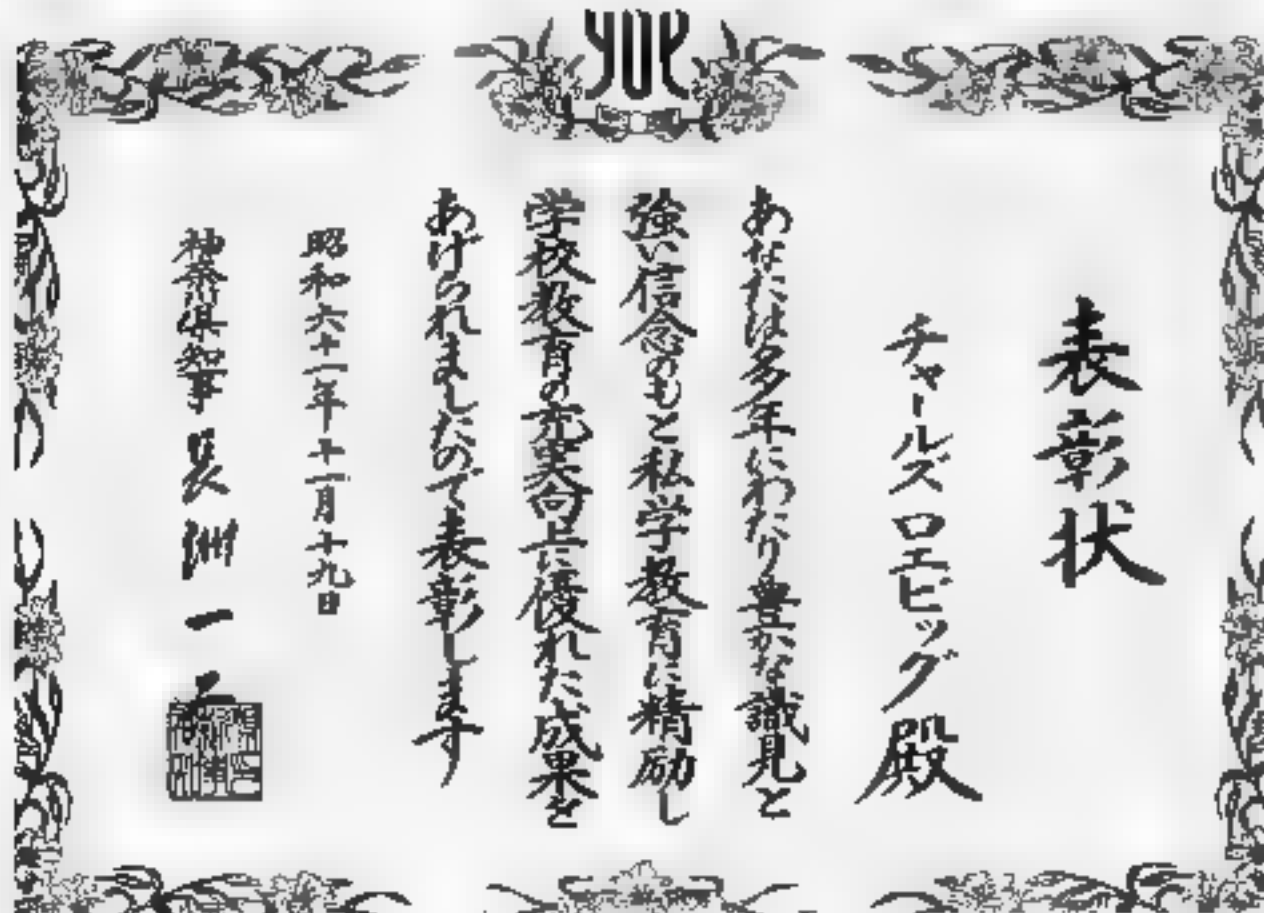 表彰状
チャールズ ロエビッグ殿
あなたは多年にわたり豊かな識見と
強い信念のもと私学教育に精励し
学校教育の充実向上に優れた成果を
あげられましたので表彰します
昭和六十一年十一月十九日
神奈川県知事 長洲一二